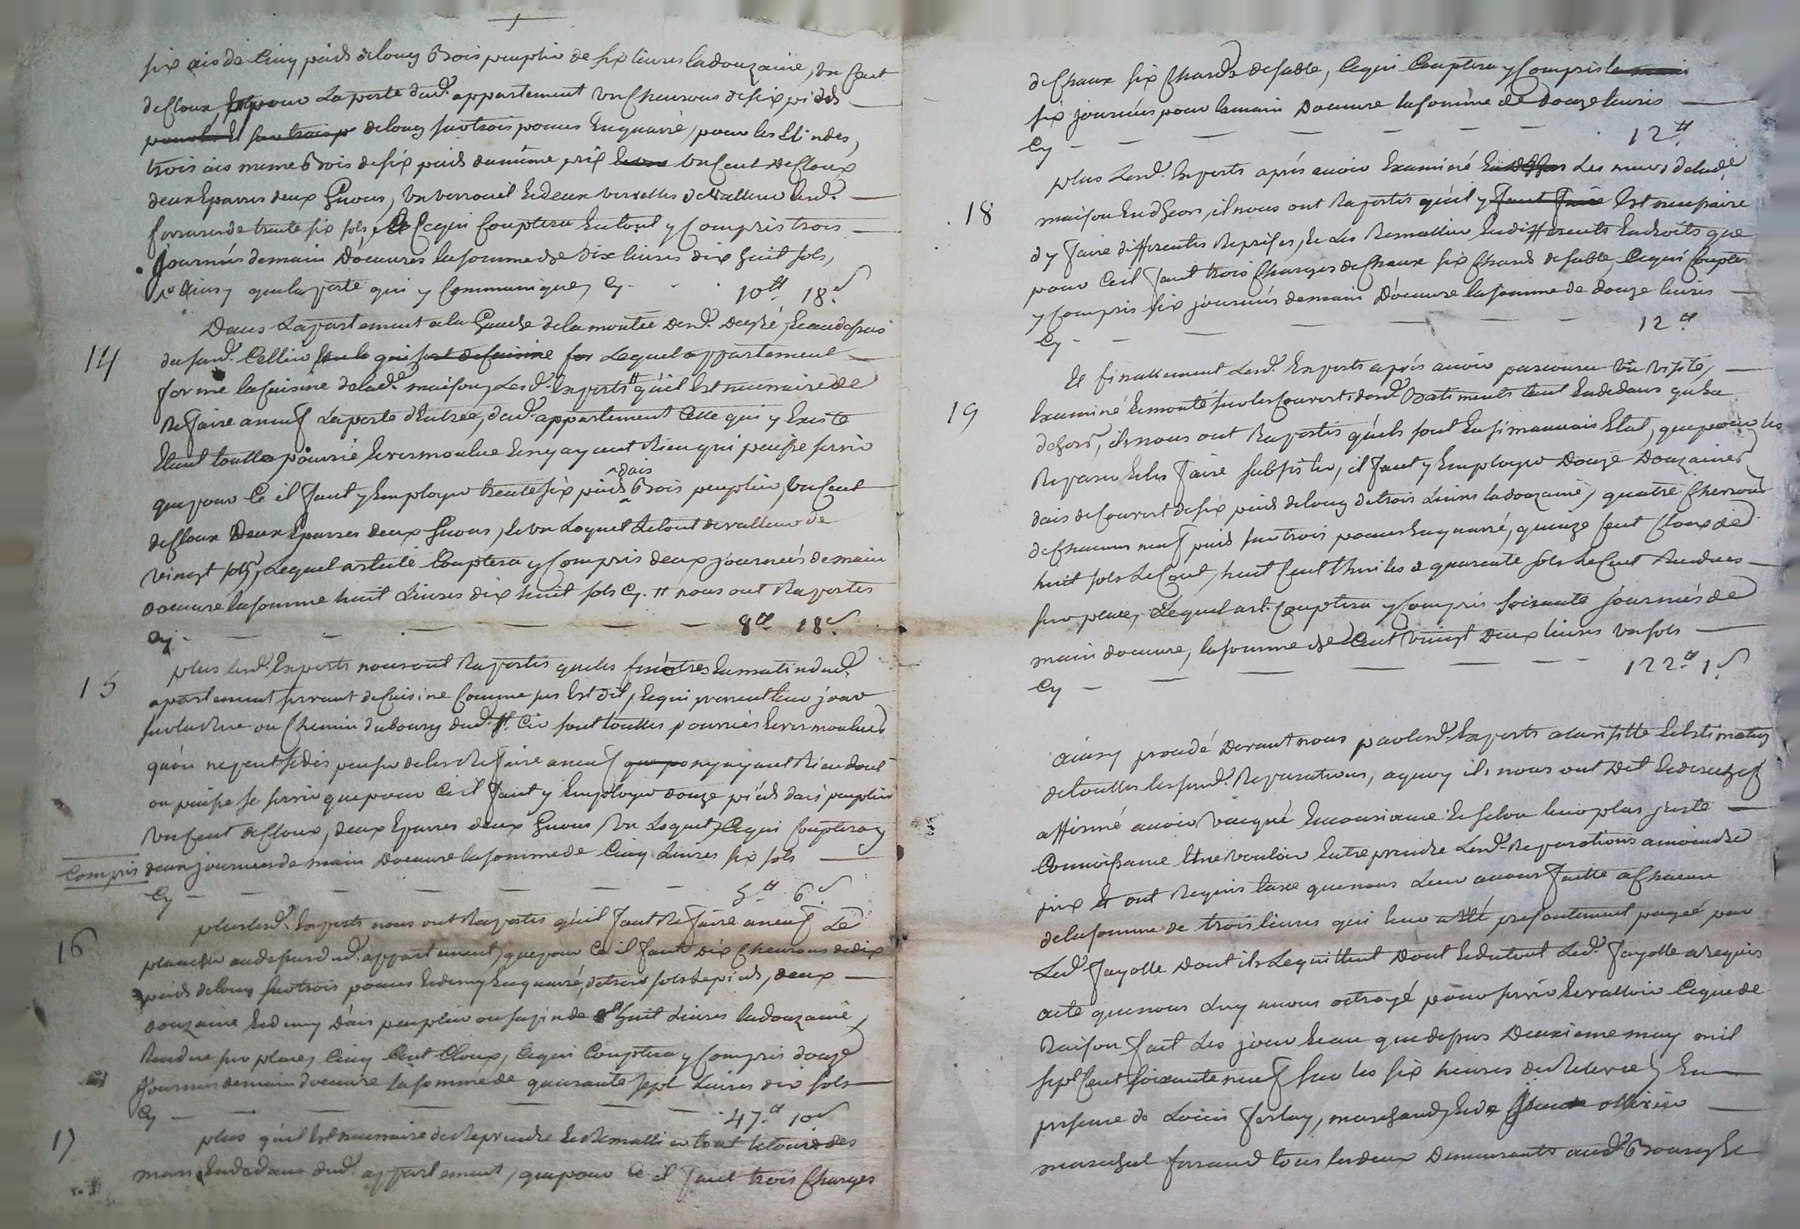 six ais de Cinq pieds de long Bois peuplier de six livres la douzaine, un Cent
de Cloux pour La porte dud. appartement un Chevrons de six pieds
de long sur trois pouces En quarré, pour les
trois ais meme Bois de six pieds du même prix un Cent de Cloux
deux Eparres deux Gonds, un verrouil Et deux de valleur
de trente six sols, Ce qui Couptera En tout y Compris trois
Journées de main D'oeuvres la somme de dix livres dix huit sols,
que la porte qui y Communique, Cy - - 10 18
Dans L'apartement a la Gauche de la montée dud. Degré, Et au dessus
14 du susd. Cellier Lequel appartement
forme la Cuisine de lad. maison, Lesd. Experts qu'il Est necessaire de
Refaire a neuf La porte d'Entrée, dud. appartement Celle qui y Existe
Etant toutte pourrie Et vermoulue n'y ayant Rien qui puisse servir
que pour Ce il faut y Employer trente six pieds d'ais Bois peuplier, un Cent
de Cloux Deux Eparres deux Gonds, Et un Loquet le tout de valleur de
vingt sols, Lequel article Couptera y Compris deux journées de main
doeuvre la somme huit Livres dix huit sols Cy. nous ont Raportés
Cy - - - - - - 8 18
plus lesd. Experts nous ont Raportés que les fenêtres du matin dud.
15 apartement servant de Cuisine Comme jas Est dit, Et qui prenent leur jour
sur la Rue ou Chemin du bourg dud. St Cir sont touttes pourries Et vermoulues
qu'on ne peut se dispenser de les Refaire a neuf n'y ayant Rien dont
on puisse se servir que pour Ce il faut y Employer douze pieds d'ais peuplier
un Cent de Cloux, deux Eparres deux Gonds Un Loquet, Ce qui Couptera y
Compris deux journées de main Doeuvre la somme de Cinq Livres six sols
Cy - - - - - - 5 6
plus lesd. Experts nous ont Raportés qu'il faut Refaire a neuf Le
16 plancher au dessus dud. appartement, que pour Ce il faut dix Chevrons de dix
pieds de long sur trois pouces Et demy En quarré, de trois sols le pied, deux
douzaine Et demy D'ais peuplier ou sapin de huit Livres la douzaine,
Rendue sur place, Cinq Cent Cloux, Ce qui Couptera y Compris douze
Journées de main d'oeuvre la somme de quarante sept Livres dix sols
Cy - - - - - - 47 10
17 plus qu'il Est necessaire de Reprendre Et Remattier tout le tour des
murs En dedans dud. appartement, que pour Ce il faut trois Charges
de Chaux six Chards de sable, Ce qui Couptera y Compris
six journées pour la main Doeuvre la somme de douze livres
Cy - - - - - - 12
plus Lesd. Experts après avoir Examiné Les murs de lad.
18 maison En dehors, il nous ont Raportés qu'il y Est necessaire
d'y faire differentes Reprises, Et Les Remattier En differents Endroits que
pour Ce il faut trois Charges de Chaux six Chards de sable, Ce qui Couptera
y Compris six journées de main D'oeuvre la somme de douze livres
Cy - - - - - - 12
Et finallement Lesd. Experts après avoir parcouru vu Visité,
19 Examiné Et monté sur les Couverts desd. Batiments tant En dedans qu'En
dehors, ils nous ont Raportés qu'ils sont En si mauvais Etat, que pour les
Reparer Et les faire subsister, il faut y Employer Douze Douzaines
d'ais de Couvert de six pieds de long de trois Livres la douzaine, quatre Chevrons
de Chacun neuf pieds sur trois pouces En quarré, quinze Cent Cloux de
huit sols Le Cent, huit Cent Thuiles a quarante sols le Cent Rendues
sur place, Lequel art. Couptera y Compris soixante journées de
main doeuvre, la somme de Cent vingt deux livres un sols
Cy - - - - - - 122 1
Ainsy procedé Devant nous par lesd. Experts a la visitte Et Estimation
de touttes les susd. Reparations, a quoy ils nous ont Dit
affirmé avoir vacqué En Consience Et selon leur plus juste
Connoissance Et ne vouloir Entreprendre Lesd. Reparations a moindre
prix Et ont Requis taxe que nous Leur avons faitte a Chacun
de la somme de trois livres qui leur a été presentement payée par
Led. Fayolle Dont ils Le quittent Dont Et du tout Led. Fayolle a Requis
acte que nous Luy avons octroyé pour servir Et valloir Ce que de
Raison fait Les jour Et an que dessus Deuxieme may mil
sept Cent soixante neuf sur les six heures de Relevée, En
presence de Louis Ferlay, marchand, Et de
marechal ferrand tous les deux Demeurants aud. Bourg St